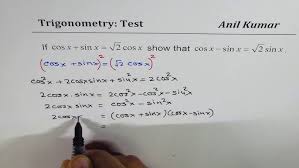 Trigonometry: Test Anil Kumar
If cos x + sin x = √2 cos x show that cos x − sin x = √2 sin x
(cos x + sin x)² = (√2 cos x)²
cos²x + 2cos x sin x + sin²x = 2cos²x
2 cos x sin x = 2cos²x − cos²x − sin²x
2 cos x sin x = cos²x − sin²x
2 cos x = (cos x + sin x)(cos x − sin x)
=